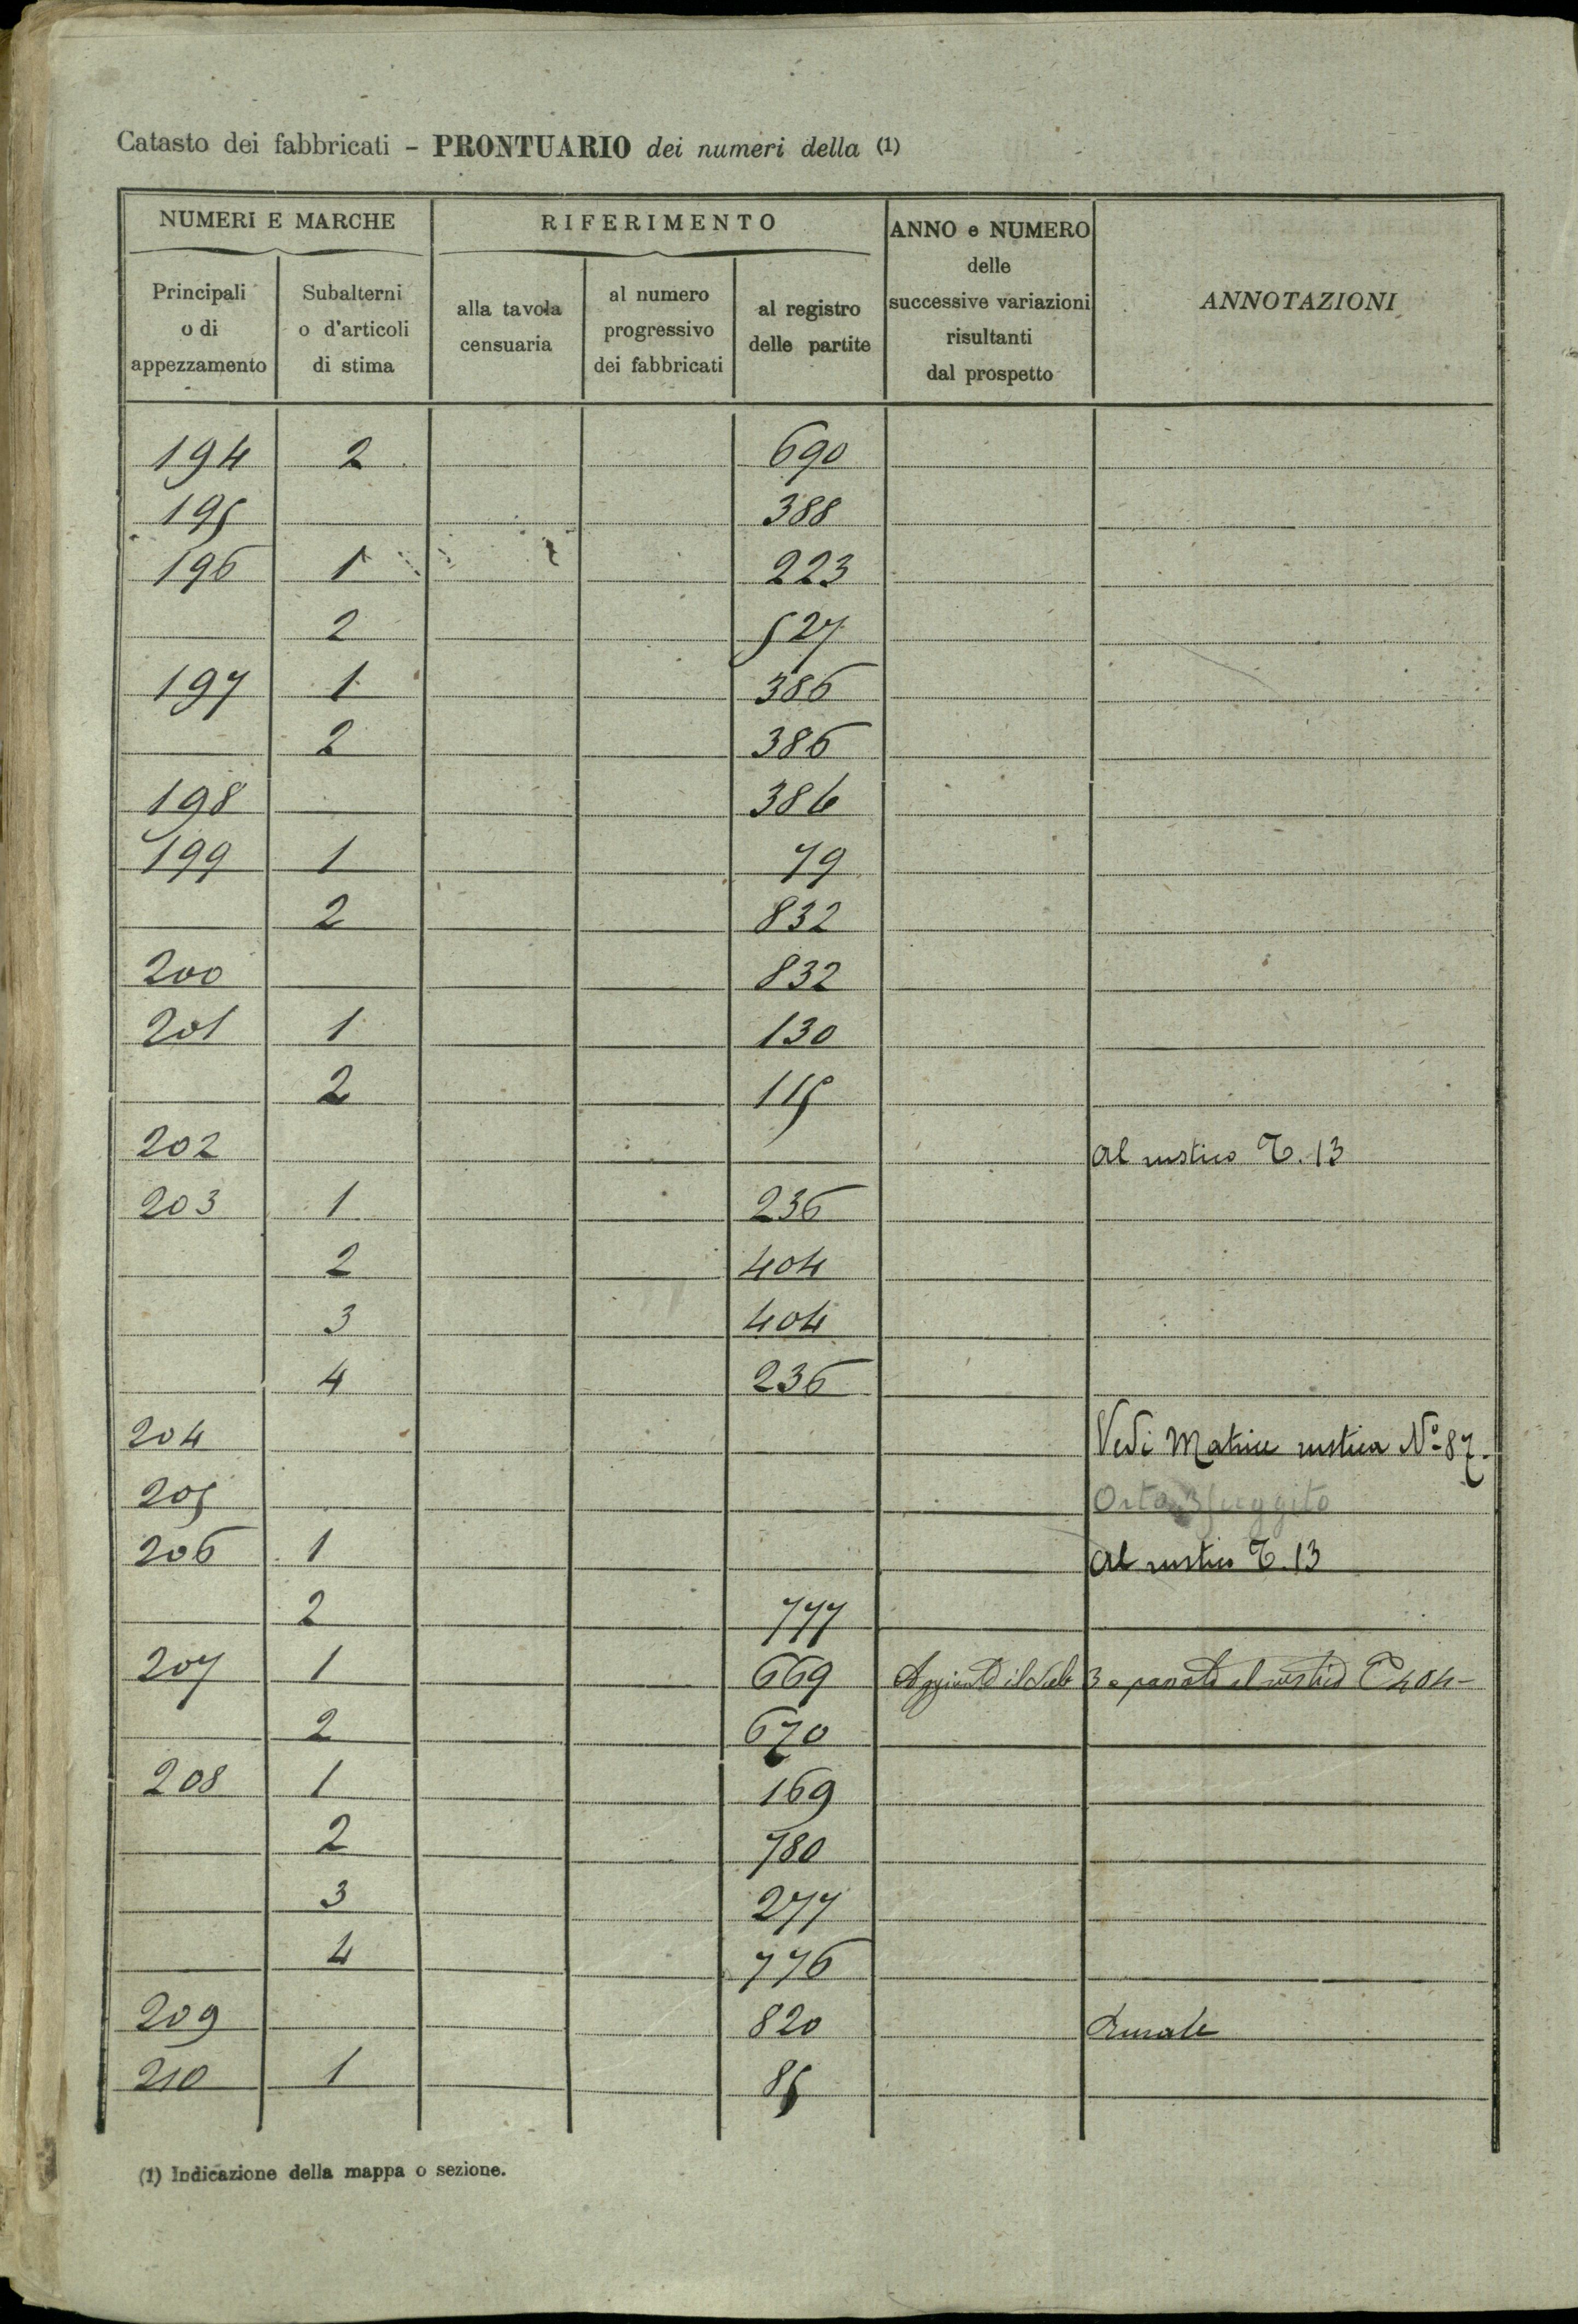 Catasto dei fabbricati – PRONTUARIO dei numeri della (1)
NUMERI E MARCHE RIFERIMENTO ANNO e NUMERO delle successive variazioni risultanti dal prospetto ANNOTAZIONI
Principali o di appezzamento Subalterni o d'articoli di stima alla tavola censuaria al numero progressivo dei fabbricati al registro delle partite
194 2 690
195 388
196 1 223
2 527
197 1 386
2 386
198 386
199 1 79
2 832
200 832
201 1 130
2 115
202 al rustico T. 13
203 1 236
2 404
3 404
4 236
204 Vedi Matrice rustica Nº 87.
205 Orto
206 1 al rustico T. 13
2 777
207 1 669 Aggiunto il Sub 3 e passato al rustico P 404-
2 670
208 1 169
2 780
3 277
4 776
209 820 Rurale
210 1 85
(1) Indicazione della mappa o sezione.